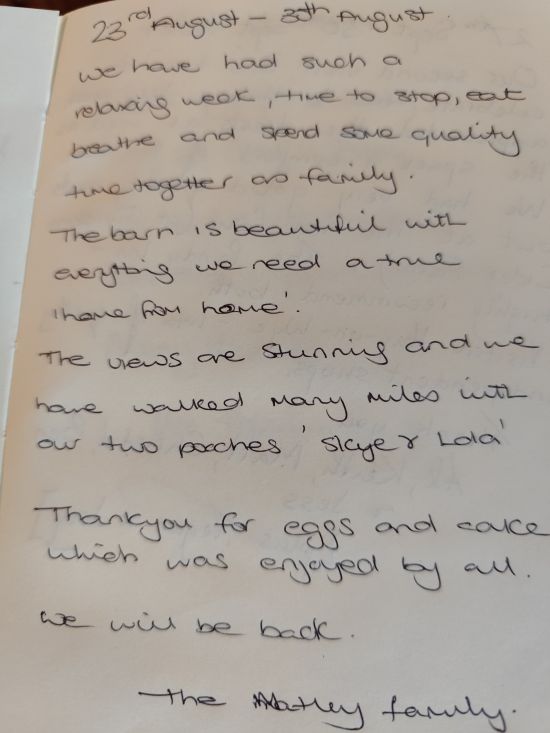 23rd August - 30th August.
we have had such a
relaxing week, time to stop, eat
breathe and spend some quality
time together as family.
The barn is beautiful with
everything we need a true
'home from home'.
The views are stunning and we
have walked many miles with
our two pooches 'Skye & Lola'
Thankyou for eggs and cake
which was enjoyed by all.
we will be back.
The family.